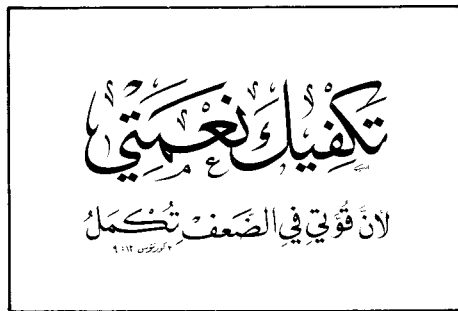 تَكْفِيكَ نِعْمَتِي
لأَنَّ قُوَّتِي فِي الضَّعْفِ تُكْمَلُ
٢ كورنثوس ١٢ : ٩